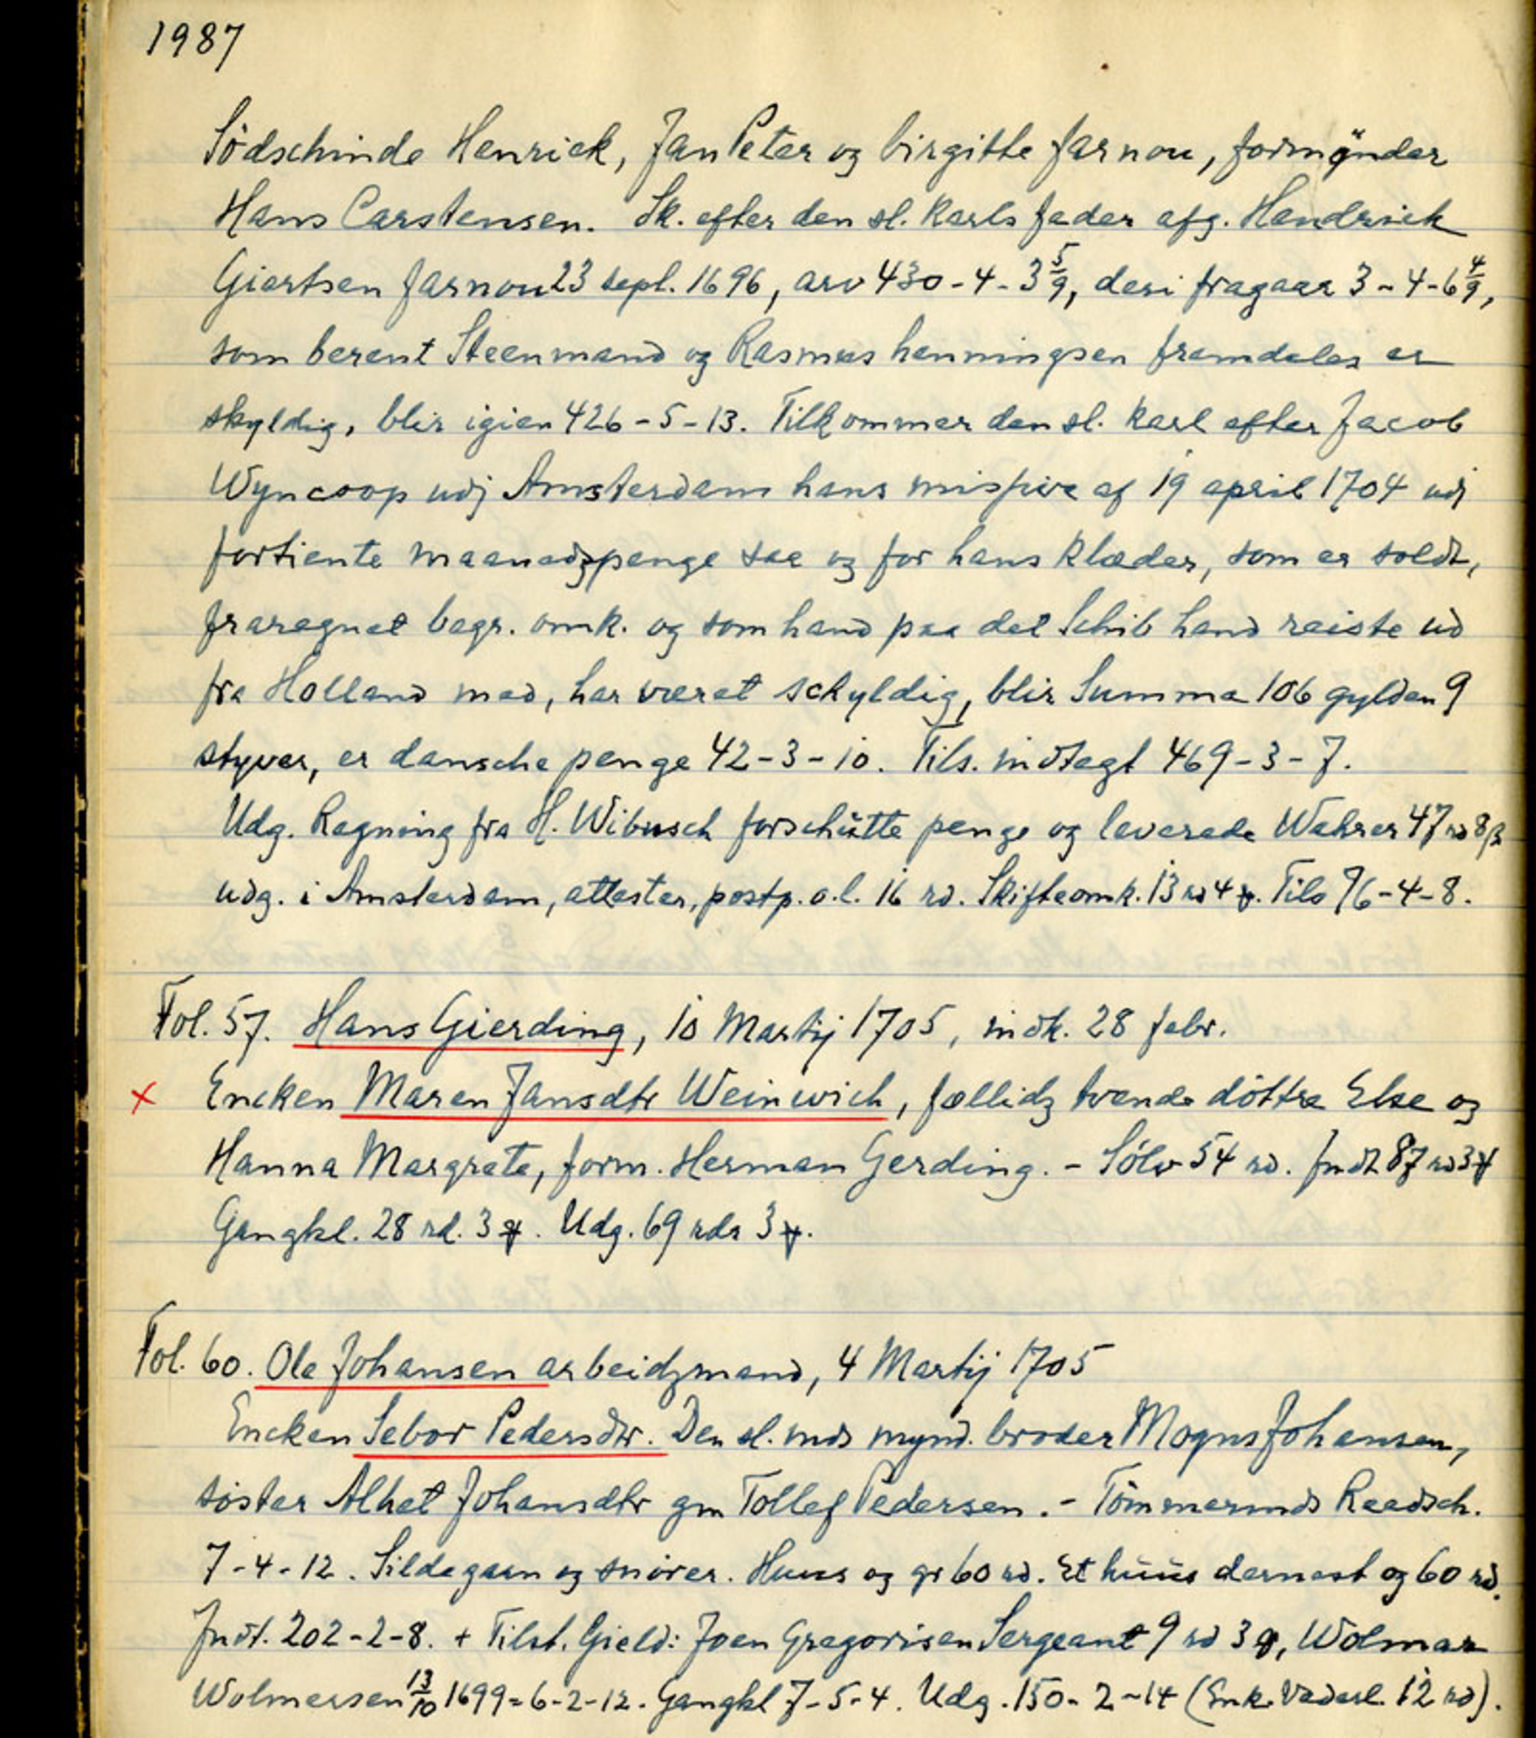 1987
Södschinde Henrick, Jan Peter og birgitte Jarnou, formÿnder
Hans Carstensen. Sk. efter den sl. Karls fader afg. Hendrick
Giertsen Jarnou 23 sept. 1696, arv 430-4-3 5/9, deri fragaar 3-4-6 4/9,
som berent Steenmand og Rasmus henningsen fremdeles er
skyldig, blir igien 426-5-13. Tilkommer den sl. Karl efter Jacob
Wyncoop udj Amsterdam hans missive af 19 april 1704 udj
fortiente maanedzpenge saa og for hans Klæder, som er soldt,
fraregnet begr. omk. og som hand paa det Schib hand reiste ud
fra Holland med, har været schyldig, blir Summa 106 gylden 9
styver, er dansche penge 42-3-10. Tils. indtegt 469-3-7.
Udg. Regning fra H. Wibusch forschütte penge og leverede Wahrer 47 rd 8 β
udg. i Amsterdam, attester, postp. o.l. 16 rd. Skifteomk. 13 rd 4 ꝟ. Tils 76-4-8.
Fol. 57. Hans Gierding, 10 Martij 1705, indk. 28 febr.
× Encken Maren Jansdtr Weinwich, fællidz tvende döttre Else og
Hanna Margrete, form. Herman Gerding. - Sölv 54 rd. Indt 87 rd 3 ꝟ
Gangkl. 28 rd. 3 ꝟ. Udg. 69 rdr 3 ꝟ.
Fol. 60. Ole Johansen arbeidzmand, 4 Martij 1705
Encken Sebor Pedersdtr. Den sl. mds mynd. broder Mogns Johansen,
söster Alhet Johansdtr gm Tollef Pedersen. - Tömmermds Reedsch.
7-4-12. Sildegarn og snörer. Huus og gr 60 rd. Et huus dernest og 60 rd.
Indt. 202-2-8. + Tilst. Gield: Joen Gregorisen Sergeant 9 rd 3 ꝟ, Wolmar
Wolmersen 13/10 1699 = 6-2-12. Gangkl 7-5-4. Udg. 150-2-14 (Enk. Vederl. 12 rd).